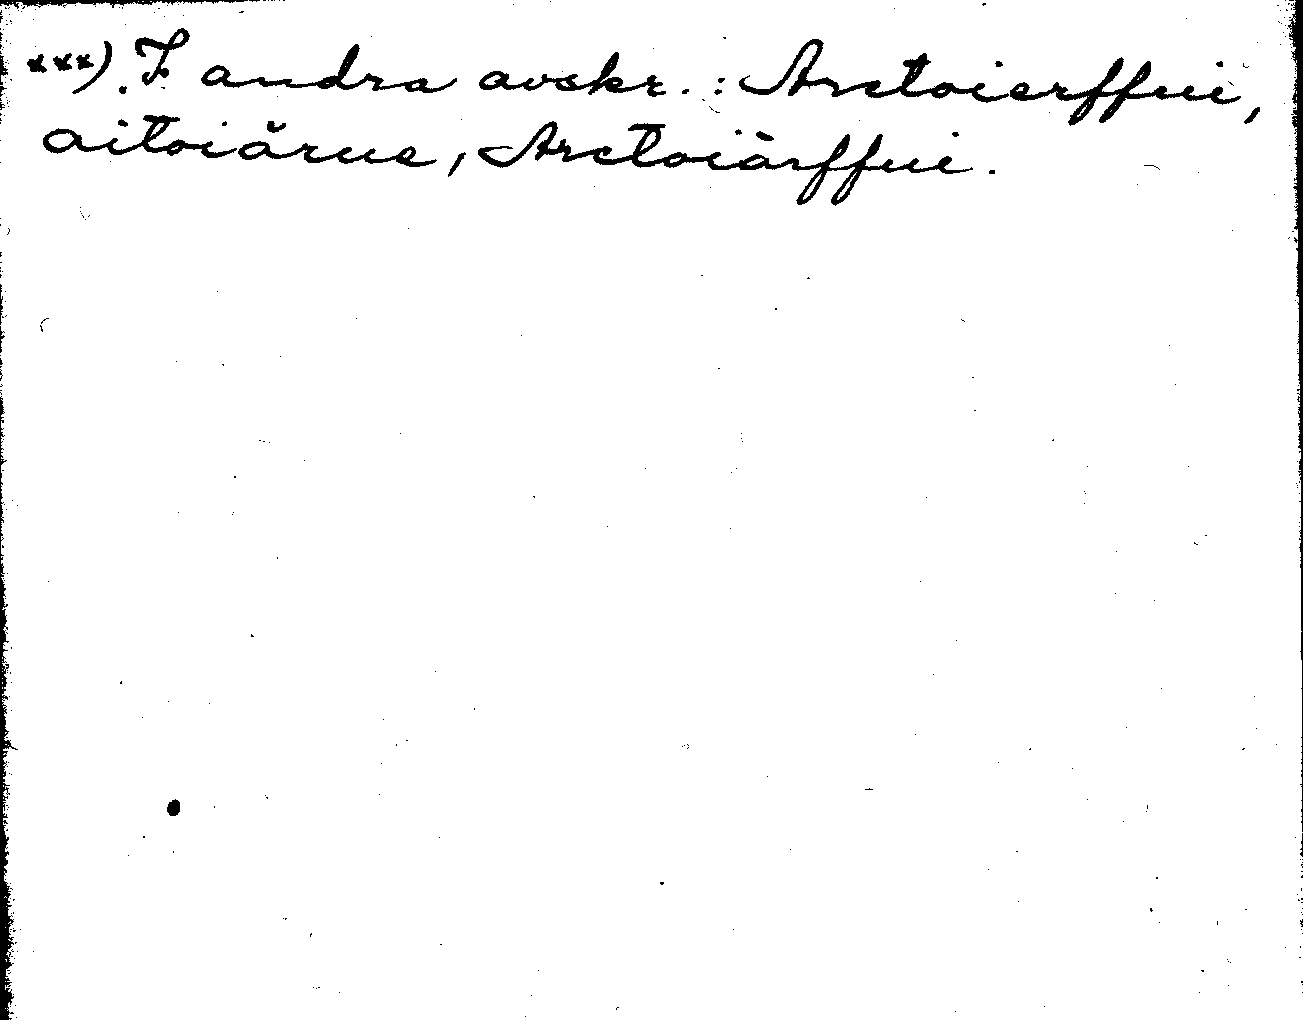 ***). I andra avskr. : Arctoierffui,
aitoiärue, Arctoiärffui.